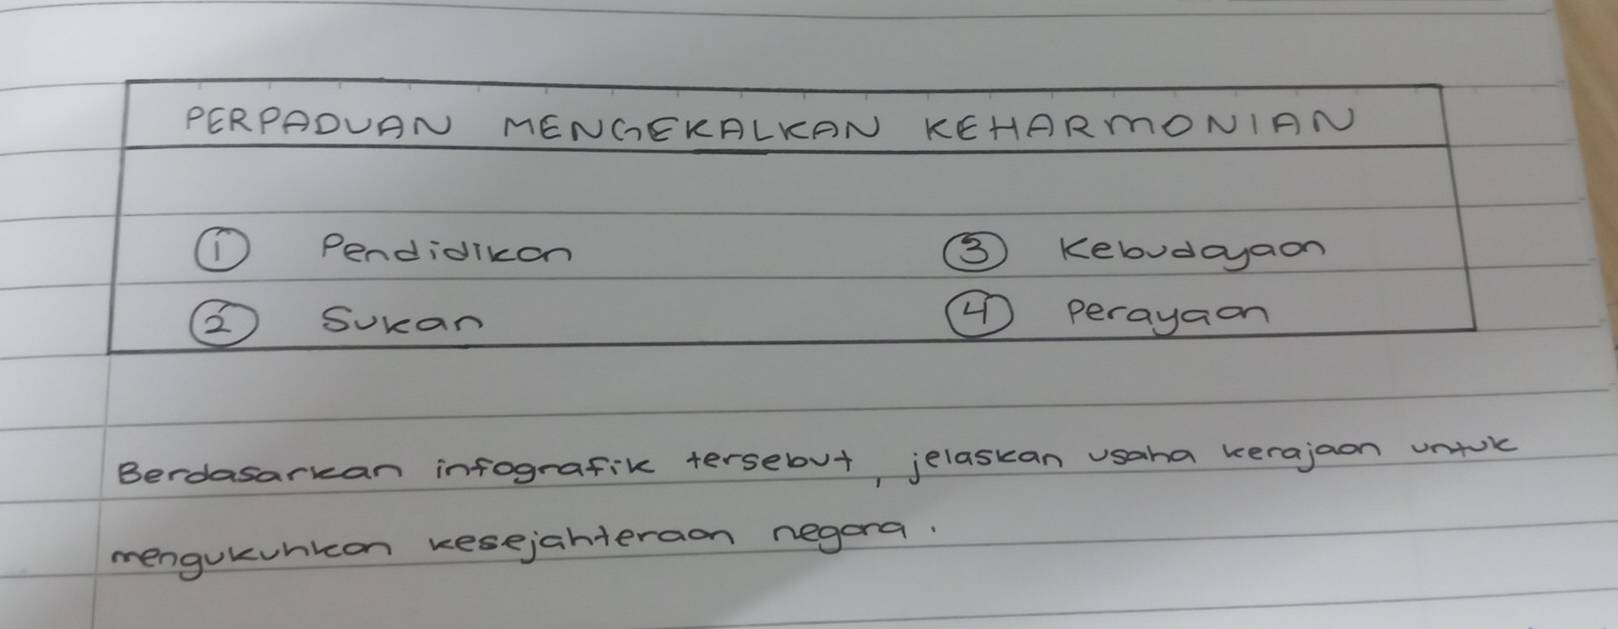 PERPADUAN MENGEKALKAN KEHARMONIAN
① Pendidikan ③ Kebudayaan
② Sukan ④ Perayaan
Berdasarkan infografik tersebut, jelaskan usaha kerajaan untuk
mengukuhkan kesejahteraan negara.